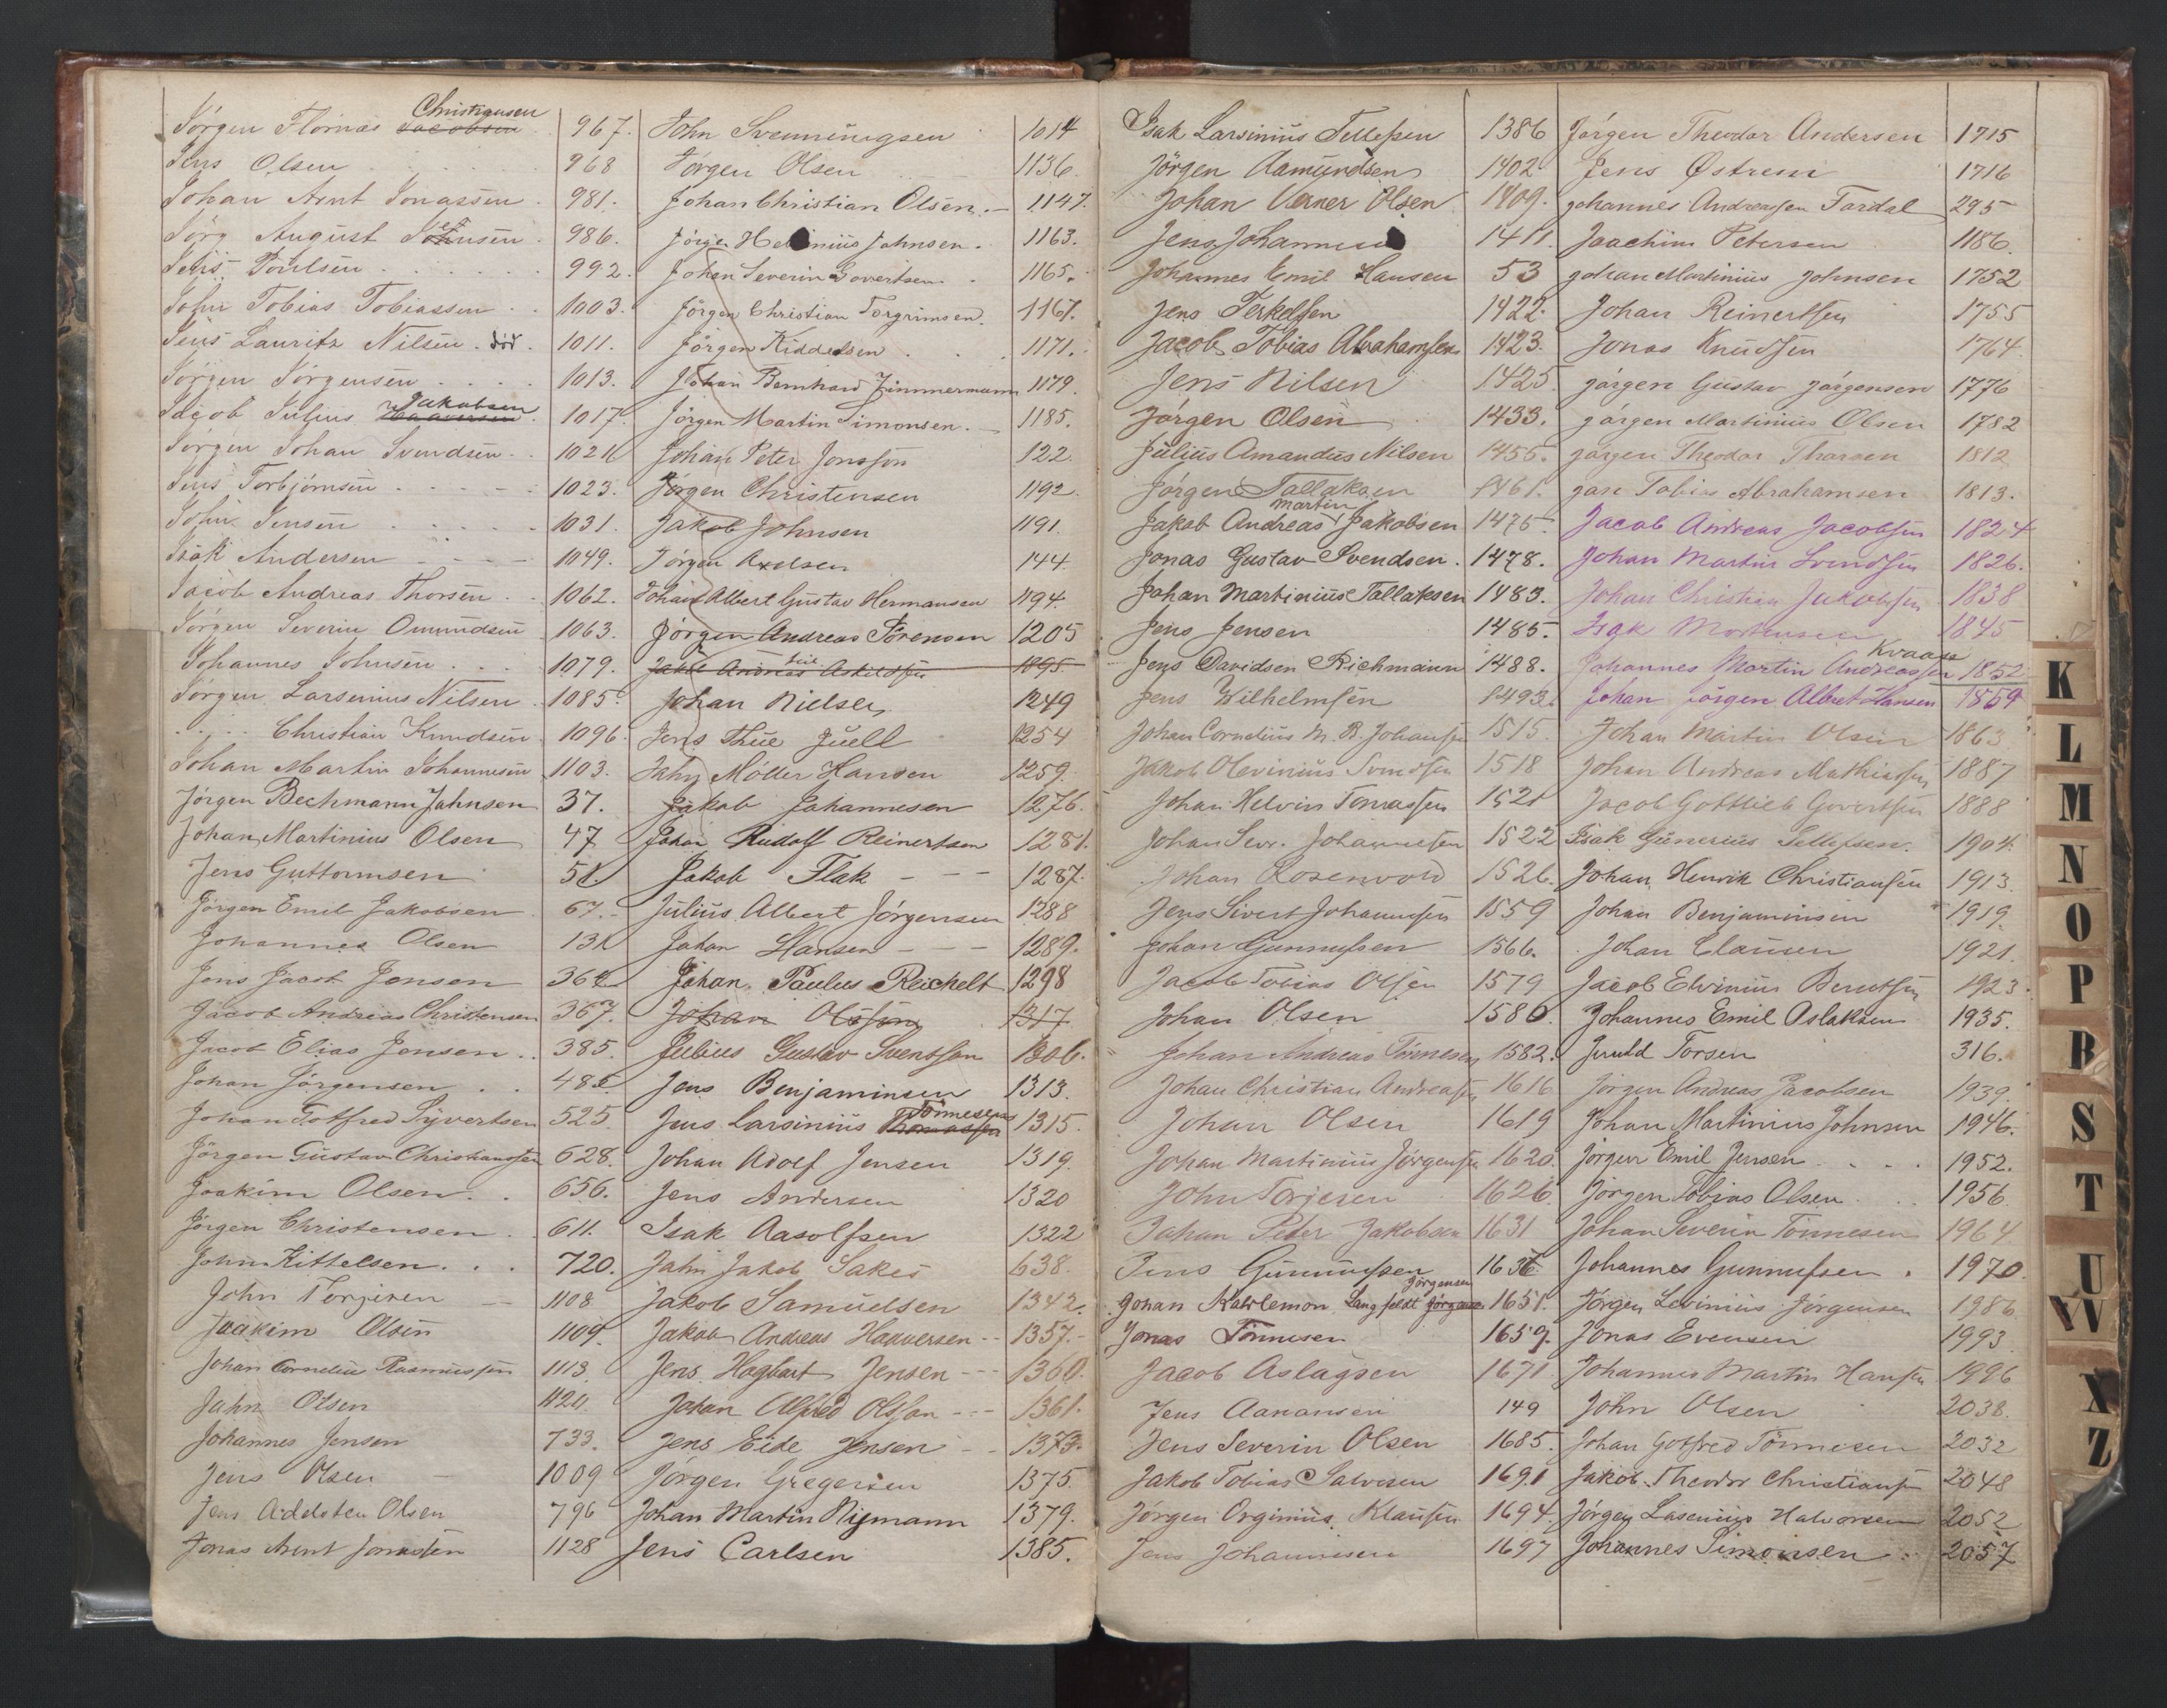 Jörgen Thomas Jacobsen Christiansen 967.
Jens Olsen 968
Johan Arnt Jonassen 981.
Jörg. August 986.
Jens Poulsen 992.
John Tobias Tobiassen 1003.
Jens Lauritz Nilsen. död. 1011.
Jörgen Jörgensen 1013.
Jacob Julius Jakobsen 1017.
Jörgen Johan Svendsen 1021
Jens Torbjörnsen 1023.
John Jensen 1031.
Isak Andersen 1049.
Jacob Andreas Thorsen 1062.
Jörgen Severin Omundsen 1063.
Johannes Johnsen 1079.
Jörgen Larsenius Nilsen 1085.
Christian Knudsen 1096.
Johan Martin Johannesen 1103.
Jörgen Bechmann Jahnsen 37.
Johan Martinius Olsen 47
Jens Guttormsen 51.
Jörgen Emil Jakobsen 67.
Johannes Olsen 131
Jens Jacob Jensen 364
Jacob Andreas Christensen 367.
Jacob Elias Jensen 385.
Johan Jörgensen 485
Johan Gotfred Syvertsen 525.
Jörgen Gustav Christiansen 628.
Joakim Olsen 656.
Jörgen Christensen 611.
John Kittelsen 720.
John Torgisen 1108
Joakim Olsen 1109.
Johan Cornelius Rasmussen 1113.
Jahn Olsen 1121
Johannes Jensen 733.
Jens Olsen 1009
Jens Addsten Olsen 796
Jonas Arent Jonassen 1128
John Svenningsen 1014
Jörgen Olsen 1136.
Johan Christian Olsen. 1147.
Jörgen Johnsen. 1163.
Johan Severin Govertsen 1165.
Jörgen Christian Torgrimsen. 1167.
Jörgen Kiddelsen 1171.
Johan Bernhard Zimmermann 1179.
Jörgen Martin Simonsen. 1185.
Johan Peter Jonsson 122.
Jörgen Christensen 1192.
Jakob Johnsen 1191.
Jörgen Axelsen 144
Johan Albert Gustav Hermansen 1194.
Jörgen Andreas Sörensen 1205
Jakob Andreas Askildsen 1895
Johan Nielsen 1249
Jens Thue Juell 1254
Jahn Möller Hansen 1259.
Jakob Johannesen 1276.
Johan Rudolf Reinertsen 1281.
Jakob Flak 1287.
Julius Albert Jörgensen 1288
Johan Hansen 1289.
Johan Paulus Reichelt 1298
Johan Olsson 1317
Julius Gustav Sventsson 1306.
Jens Benjaminsen 1313.
Jens Larsinius Thomassen Tönnesen 1315.
Johan Adolf Jensen 1319.
Jens Andersen 1320
Isak Aasolfsen 1322
Jahn Jakob Sakes 638.
Jakob Samuelsen 1342.
Jakob Andreas Halvorsen 1357.
Jens Hagbart Jensen 1360.
Johan Alfred Olsson 1361.
Jens Eide Jensen 1373.
Jörgen Gregersen 1375.
Johan Martin Nymann 1379.
Jens Carlsen 1385.
Isak Larsinius Tellefsen 1386
Jörgen Aamundsen 1402
Johan Verner Olsen 1409.
Jens Johannesen 1411.
Johannes Emil Hansen 53
Jens Terkelsen 1422.
Jacob Tobias Abrahamsen 1423.
Jens Nilsen 1425.
Jörgen Olsen 1433.
Julius Amandus Nilsen 1455.
Jörgen Tallaksen 1461.
Jakob Andreas Martin Jakobsen 1475.
Jonas Gustav Svendsen. 1478.
Johan Martinius Tallaksen 1483.
Jens Jensen 1485.
Jens Davidsen Richmann 1488.
Jens Wilhelmsen 1493.
Johan Cornelius M. B. Johansen 1515.
Jakob Olevinius Svendsen 1518
Johan Helvin Tomassen 1521
Johan Sevr. Johannesen 1522
Johan Rosenvold 1526.
Jens Sivert Johannesen 1559
Johan Gunnufsen 1566.
Jacob Tobias Olsen 1579
Johan Olsen 1580.
Johan Andreas Tönnesen 1582.
Johan Christian Andreasen 1616
Johan Olsen 1619
Johan Martinius Jörgensen 1620.
John Torjesen 1626
Johan Peter Jakobsen 1631
Jens Gunnufsen 1636
Johan Langfeldt Jörgensen 1651.
Jonas Tönnesen 1659.
Jacob Aslagsen 1671
Jens Aanansen 149
Jens Severin Olsen 1685.
Jakob Tobias Salvesen 1691
Jörgen Orginius Klausen 1694.
Jens Johannesen 1697
Jörgen Theodor Andersen 1715
Jens Østrem 1716
Johannes Andreassen Tardal 295
Joachim Petersen 1186.
Johan Martinius Johnsen 1752
Johan Reinertsen 1755
Jonas Knudsen 1764.
Jörgen Gustav Jörgensen 1776
Jörgen Martinius Olsen 1782
Jörgen Theodor Thorsen 1812
Jan Tobias Abrahamsen 1813.
Jacob Andreas Jacobsen 1824
Johan Martin Svendsen 1826.
Johan Christian Jakobsen 1838
Isak Mortensen 1845
Johannes Martin Andreassen Kvaase 1852.
Johan Jörgen Albert Hansen 1859
Johan Martin Olsen 1863
Johan Andreas Mathiassen 1887
Jacob Gottlieb Govertsen 1888
Isak Gunerius Tellefsen. 1904.
Johan Henrik Christiansen 1913.
Johan Benjaminsen 1919.
Johan Clausen 1921.
Jacob Elvinius Berntsen 1923.
Johannes Emil Aslaksen 1935.
Juuld Torsen 316.
Jörgen Andreas Jacobsen 1939.
Johan Martinius Johnsen 1946.
Jörgen Emil Jensen 1952.
Jörgen Tobias Olsen 1956
Johan Severin Tönnesen 1964
Johannes Gunnufsen 1970
Jörgen Levinius Jörgensen 1986
Jonas Evensen 1993
Johannes Martin Hansen 1996
John Olsen 2038.
Johan Gotfred Tönnesen 2032
Jakob Theodor Christiansen 2048
Jörgen Lasenius Halvorsen 2052
Johannes Simonsen 2057
K
L
M
N
O
P
B
S
T
U
W
X
Z